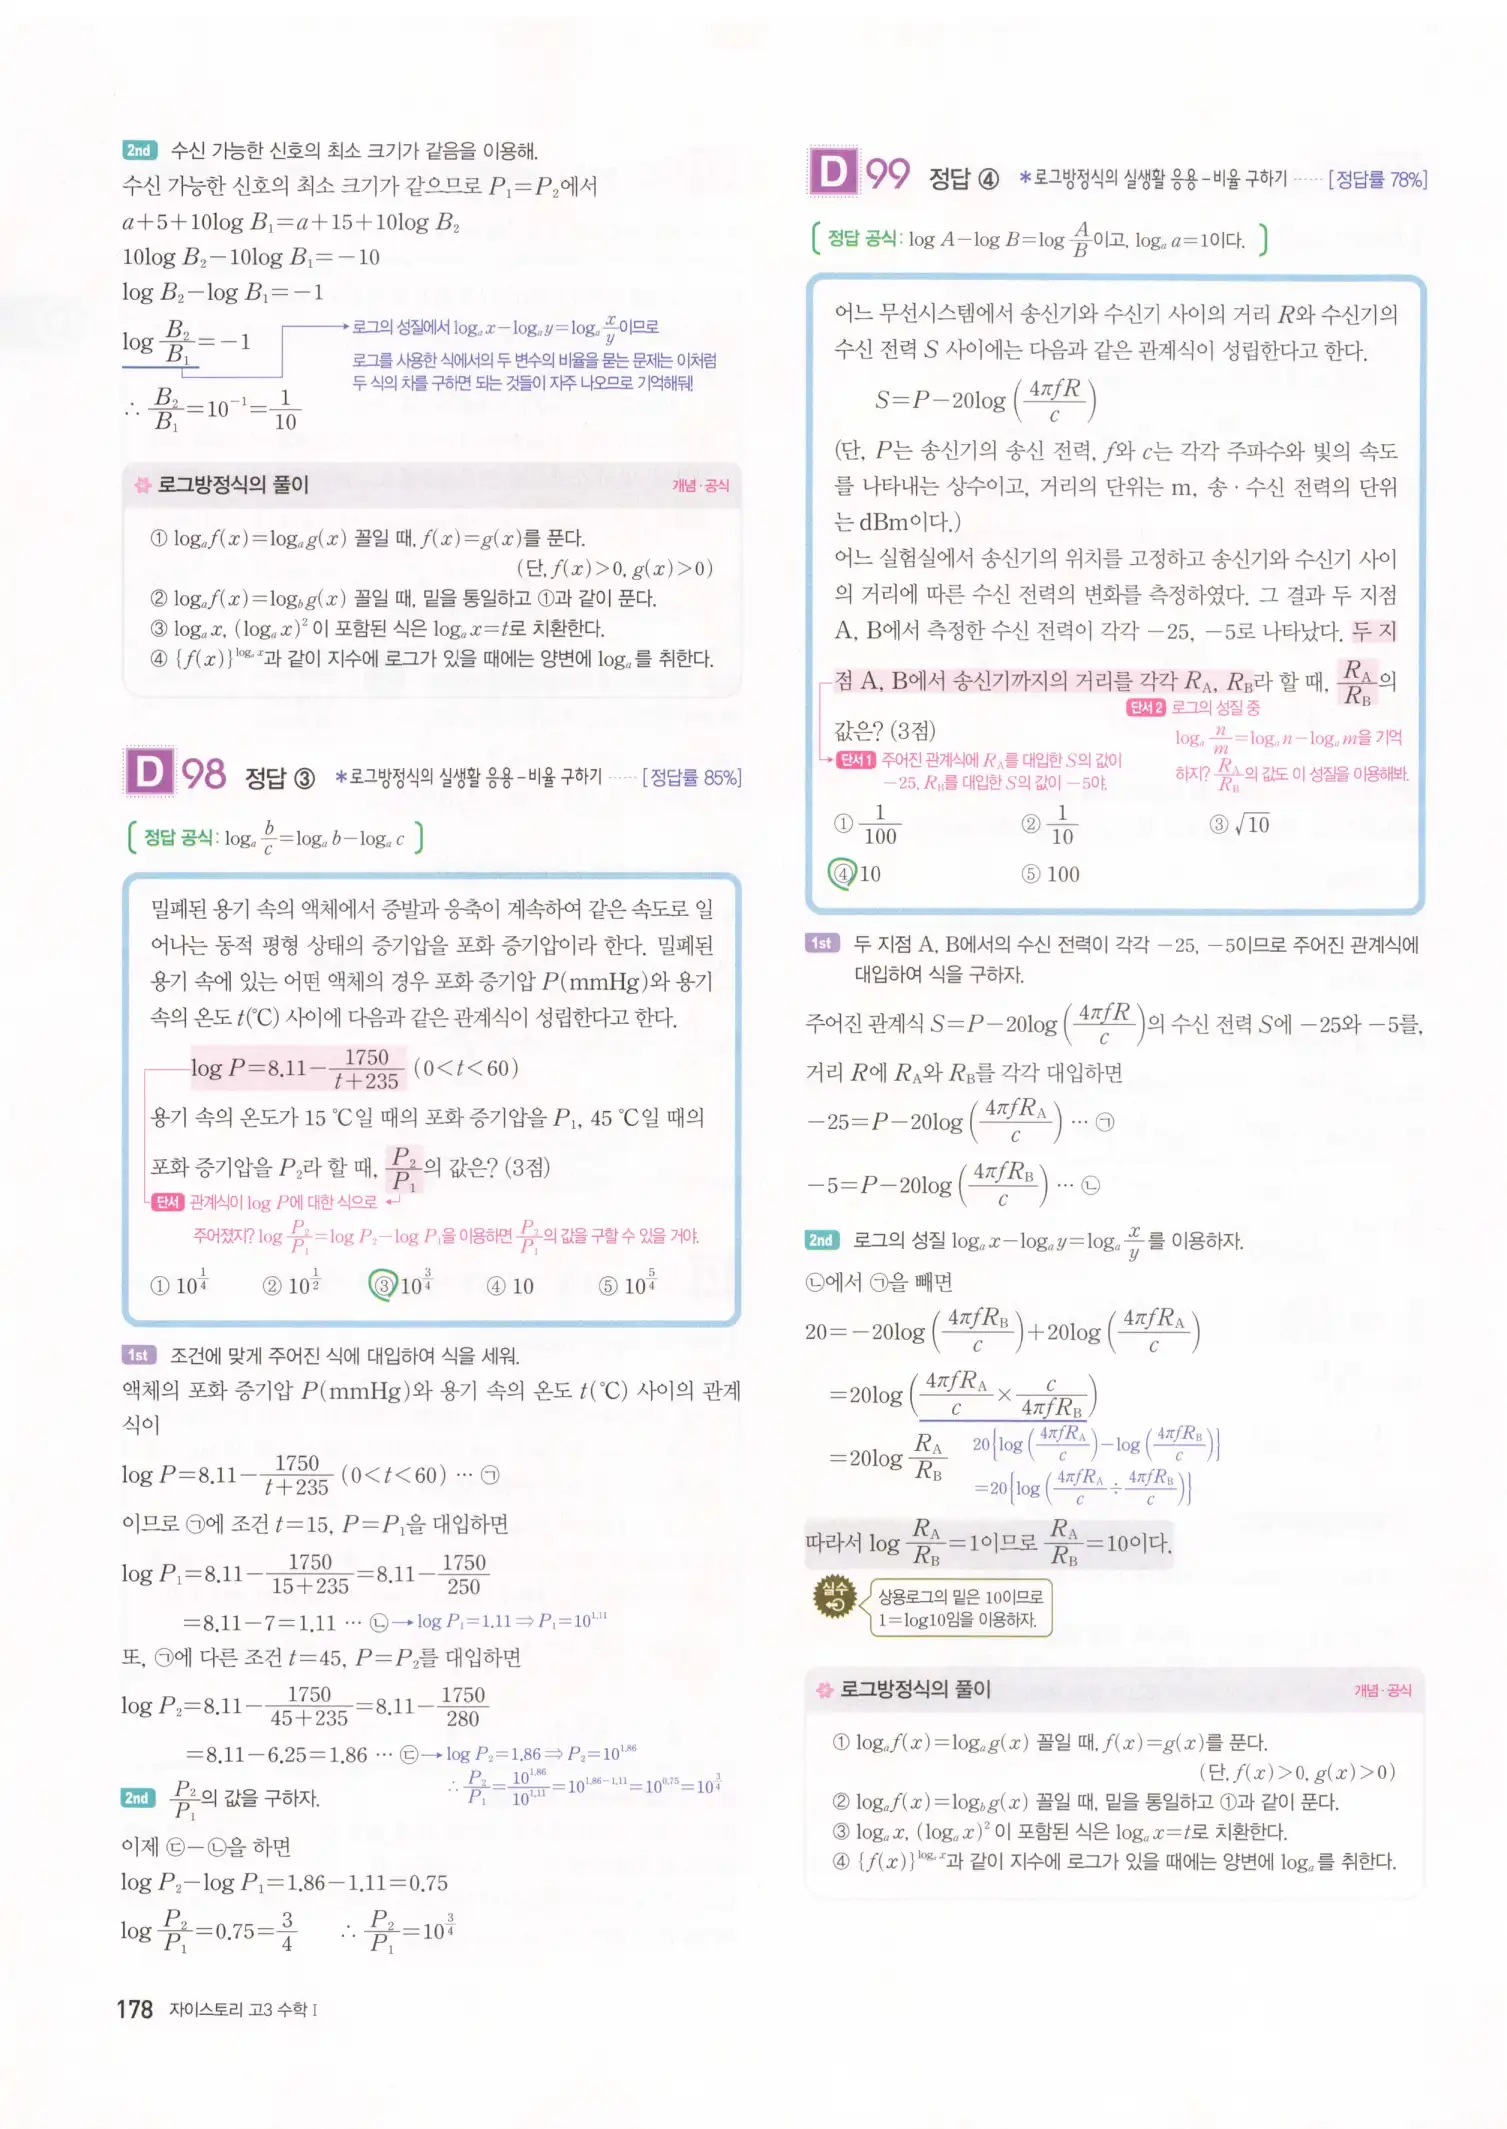 2nd 수신 가능한 신호의 최소 크기가 같음을 이용해.
수신 가능한 신호의 최소 크기가 같으므로 P₁=P₂에서
a+5+10log B₁=a+15+10log B₂
10log B₂-10log B₁=-10
log B₂-log B₁=-1
log B₂/B₁=-1
로그의 성질에서 logₐ x-logₐ y=logₐ x/y이므로
로그를 사용한 식에서의 두 변수의 비율을 묻는 문제는 이처럼
두 식의 차를 구하면 되는 것들이 자주 나오므로 기억해둬!
∴ B₂/B₁=10⁻¹=1/10
로그방정식의 풀이 개념·공식
① logₐ f(x)=logₐ g(x) 꼴일 때, f(x)=g(x)를 푼다.
(단, f(x)>0, g(x)>0)
② logₐ f(x)=log_b g(x) 꼴일 때, 밑을 통일하고 ①과 같이 푼다.
③ logₐ x, (logₐ x)²이 포함된 식은 logₐ x=t로 치환한다.
④ {f(x)}^(logₐ x)과 같이 지수에 로그가 있을 때에는 양변에 logₐ를 취한다.
D 98 정답 ③ *로그방정식의 실생활 응용-비율 구하기 ······ [정답률 85%]
[정답 공식: logₐ b/c=logₐ b-logₐ c]
밀폐된 용기 속의 액체에서 증발과 응축이 계속하여 같은 속도로 일
어나는 동적 평형 상태의 증기압을 포화 증기압이라 한다. 밀폐된
용기 속에 있는 어떤 액체의 경우 포화 증기압 P(mmHg)와 용기
속의 온도 t(℃) 사이에 다음과 같은 관계식이 성립한다고 한다.
log P=8.11-1750/(t+235) (0<t<60)
용기 속의 온도가 15 ℃일 때의 포화 증기압을 P₁, 45 ℃일 때의
포화 증기압을 P₂라 할 때, P₂/P₁의 값은? (3점)
단서 관계식이 log P에 대한 식으로
주어졌지? log P₂/P₁=log P₂-log P₁을 이용하면 P₂/P₁의 값을 구할 수 있을 거야.
① 10^(1/4) ② 10^(1/2) ③ 10^(3/4) ④ 10 ⑤ 10^(5/4)
1st 조건에 맞게 주어진 식에 대입하여 식을 세워.
액체의 포화 증기압 P(mmHg)와 용기 속의 온도 t(℃) 사이의 관계
식이
log P=8.11-1750/(t+235) (0<t<60) … ㉠
이므로 ㉠에 조건 t=15, P=P₁을 대입하면
log P₁=8.11-1750/(15+235)=8.11-1750/250
=8.11-7=1.11 … ㉡→log P₁=1.11⇒P₁=10^1.11
또, ㉠에 다른 조건 t=45, P=P₂를 대입하면
log P₂=8.11-1750/(45+235)=8.11-1750/280
=8.11-6.25=1.86 … ㉢→log P₂=1.86⇒P₂=10^1.86
∴ P₂/P₁=10^1.86/10^1.11=10^(1.86-1.11)=10^0.75=10^(3/4)
2nd P₂/P₁의 값을 구하자.
이제 ㉢-㉡을 하면
log P₂-log P₁=1.86-1.11=0.75
log P₂/P₁=0.75=3/4 ∴ P₂/P₁=10^(3/4)
178 자이스토리 고3 수학 I
D 99 정답 ④ *로그방정식의 실생활 응용-비율 구하기 ······ [정답률 78%]
[정답 공식: log A-log B=log A/B이고, logₐ a=1이다.]
어느 무선시스템에서 송신기와 수신기 사이의 거리 R와 수신기의
수신 전력 S 사이에는 다음과 같은 관계식이 성립한다고 한다.
S=P-20log(4πfR/c)
(단, P는 송신기의 송신 전력, f와 c는 각각 주파수와 빛의 속도
를 나타내는 상수이고, 거리의 단위는 m, 송·수신 전력의 단위
는 dBm이다.)
어느 실험실에서 송신기의 위치를 고정하고 송신기와 수신기 사이
의 거리에 따른 수신 전력의 변화를 측정하였다. 그 결과 두 지점
A, B에서 측정한 수신 전력이 각각 -25, -5로 나타났다. 두 지
점 A, B에서 송신기까지의 거리를 각각 R_A, R_B라 할 때, R_A/R_B의
값은? (3점)
단서1 주어진 관계식에 R_A를 대입한 S의 값이
-25, R_B를 대입한 S의 값이 -5야.
단서2 로그의 성질 중
logₐ n/m=logₐ n-logₐ m을 기억
하지? R_A/R_B의 값도 이 성질을 이용해봐.
① 1/100 ② 1/10 ③ √10
④ 10 ⑤ 100
1st 두 지점 A, B에서의 수신 전력이 각각 -25, -5이므로 주어진 관계식에
대입하여 식을 구하자.
주어진 관계식 S=P-20log(4πfR/c)의 수신 전력 S에 -25와 -5를,
거리 R에 R_A와 R_B를 각각 대입하면
-25=P-20log(4πfR_A/c) … ㉠
-5=P-20log(4πfR_B/c) … ㉡
2nd 로그의 성질 logₐ x-logₐ y=logₐ x/y를 이용하자.
㉡에서 ㉠을 빼면
20=-20log(4πfR_B/c)+20log(4πfR_A/c)
=20log(4πfR_A/c×c/4πfR_B)
=20log R_A/R_B
20{log(4πfR_A/c)-log(4πfR_B/c)}
=20{log(4πfR_A/c÷4πfR_B/c)}
따라서 log R_A/R_B=1이므로 R_A/R_B=10이다.
실수 상용로그의 밑은 10이므로
1=log10임을 이용하자.
로그방정식의 풀이 개념·공식
① logₐ f(x)=logₐ g(x) 꼴일 때, f(x)=g(x)를 푼다.
(단, f(x)>0, g(x)>0)
② logₐ f(x)=log_b g(x) 꼴일 때, 밑을 통일하고 ①과 같이 푼다.
③ logₐ x, (logₐ x)²이 포함된 식은 logₐ x=t로 치환한다.
④ {f(x)}^(logₐ x)과 같이 지수에 로그가 있을 때에는 양변에 logₐ를 취한다.